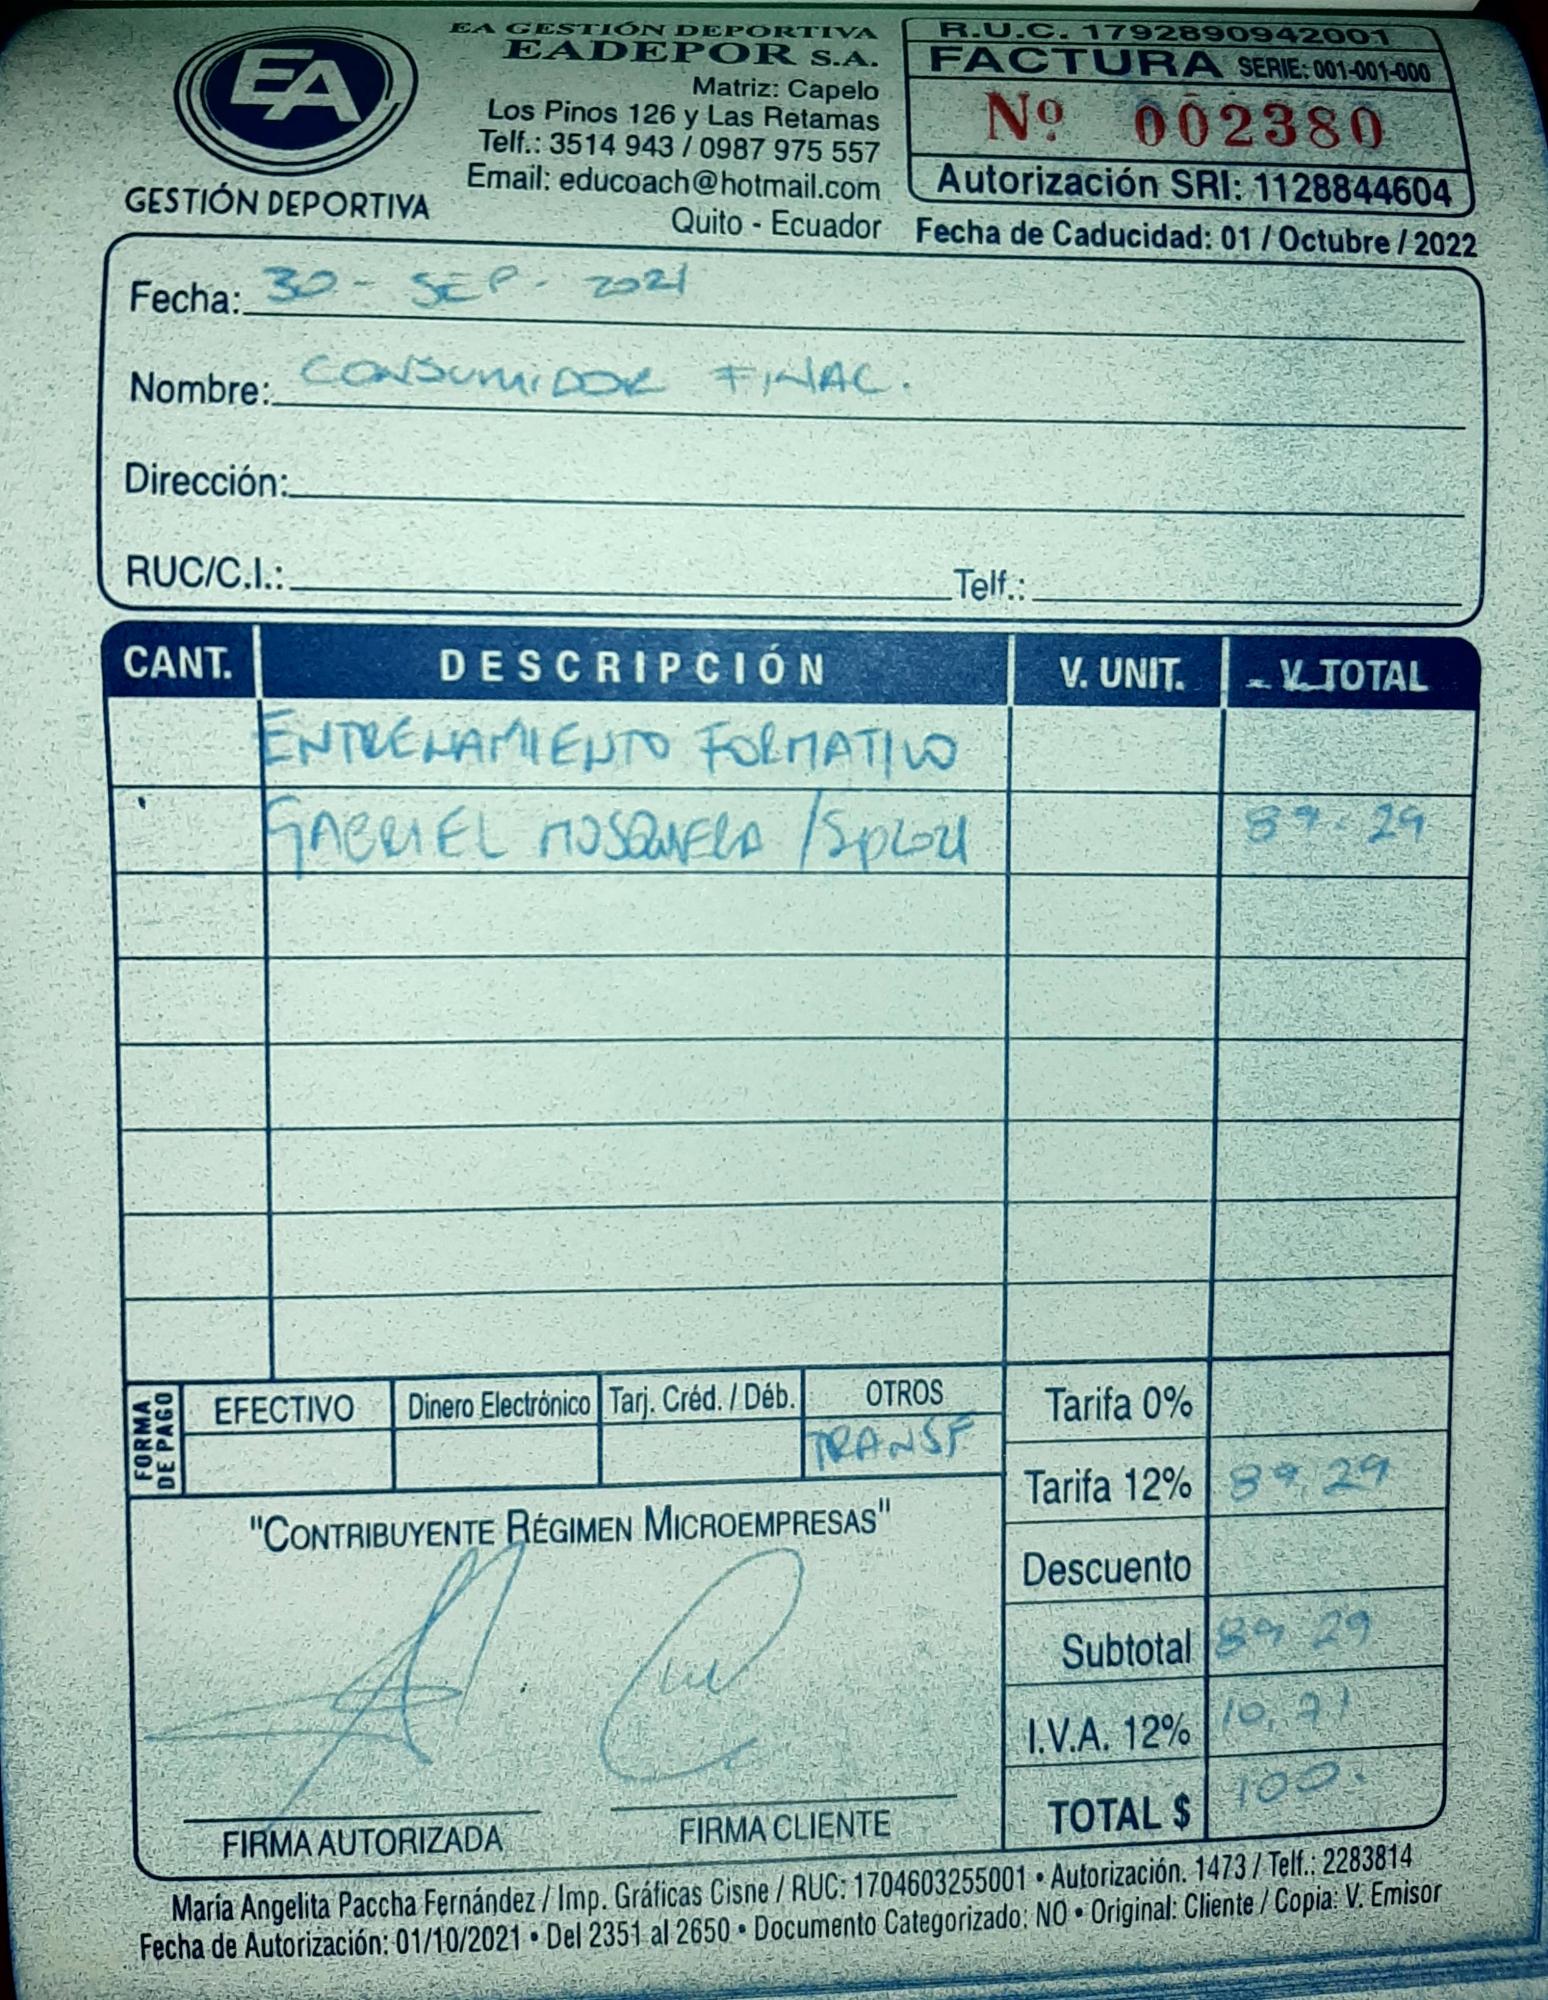 EA
GESTIÓN DEPORTIVA
EA GESTIÓN DEPORTIVA
EADEPOR S.A.
Matriz: Capelo
Los Pinos 126 y Las Retamas
Telf.: 3514 943 / 0987 975 557
Email: educoach@hotmail.com
Quito - Ecuador
R.U.C. 1792890942001
FACTURA SERIE: 001-001-000
Nº 002380
Autorización SRI: 1128844604
Fecha de Caducidad: 01 / Octubre / 2022
Fecha: 30 - SEP - 2021
Nombre: CONSUMIDOR FINAL.
Dirección:
RUC/C.I.: Telf.:
CANT. DESCRIPCIÓN V. UNIT. V. TOTAL
ENTRENAMIENTO FORMATIVO
GABRIEL MOSQUERA / 89.29
FORMA DE PAGO
EFECTIVO Dinero Electrónico Tarj. Créd. / Déb. OTROS
TRANSF
Tarifa 0%
Tarifa 12% 89,29
Descuento
Subtotal 89 29
I.V.A. 12% 10,71
TOTAL $ 100.
"CONTRIBUYENTE RÉGIMEN MICROEMPRESAS"
FIRMA AUTORIZADA FIRMA CLIENTE
María Angelita Paccha Fernández / Imp. Gráficas Cisne / RUC: 1704603255001 • Autorización. 1473 / Telf.: 2283814
Fecha de Autorización: 01/10/2021 • Del 2351 al 2650 • Documento Categorizado: NO • Original: Cliente / Copia: V. Emisor